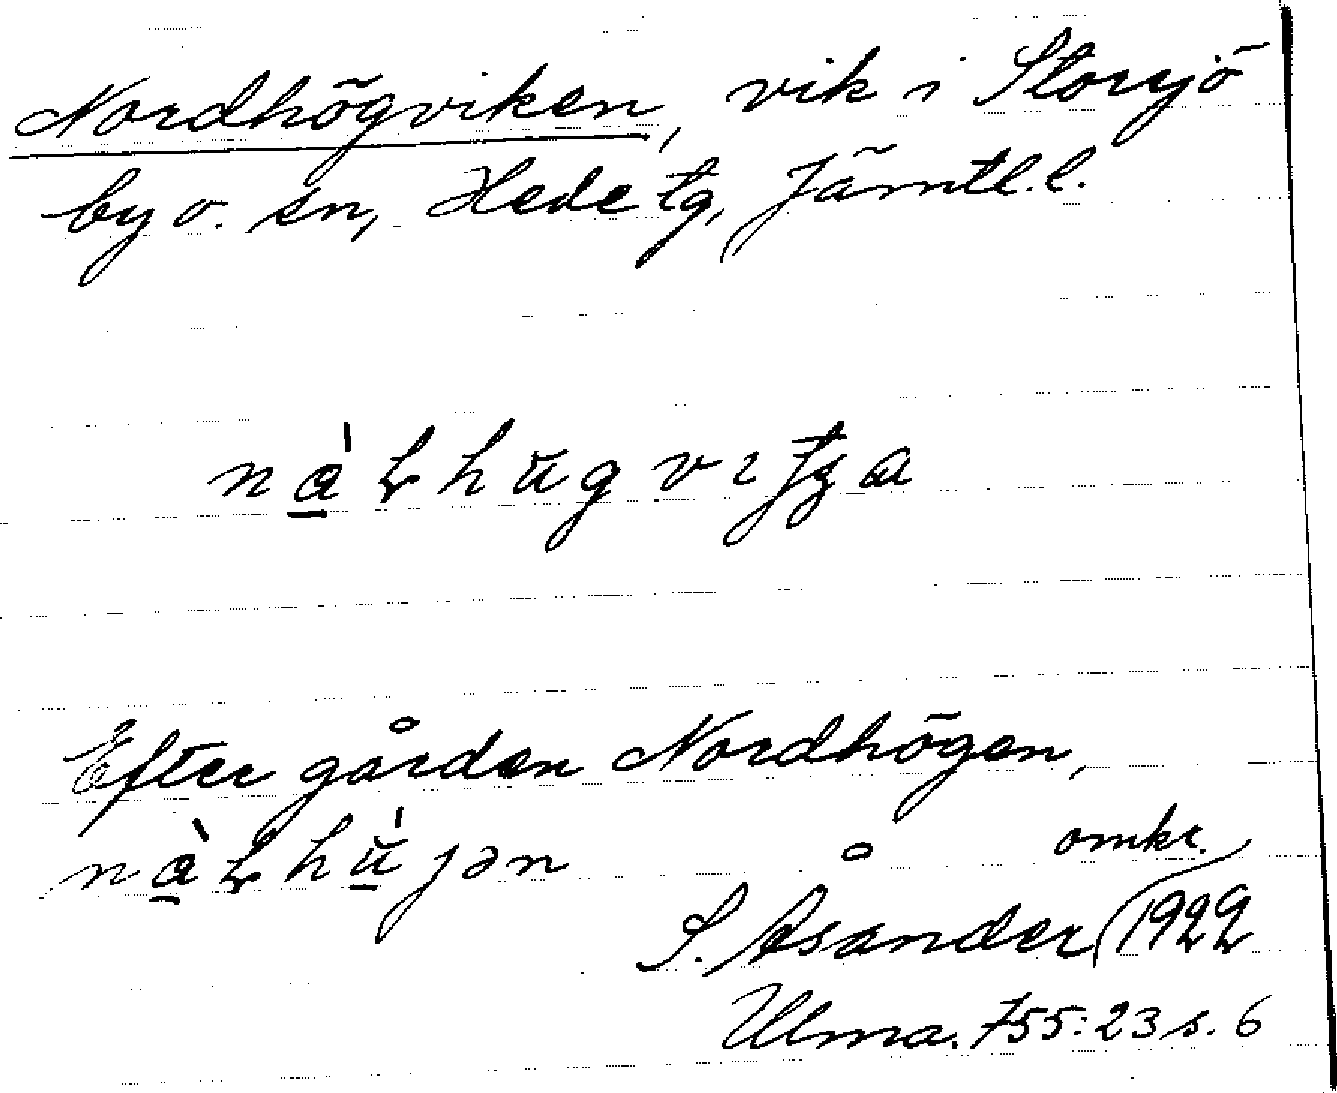 Nordhögviken, vik i Storsjö
by o. sn, Hede tg, Jämtl.l.
Efter gården Nordhögen,
omkr.
S. Åsander 1922
Ulma. 755:23 s. 6